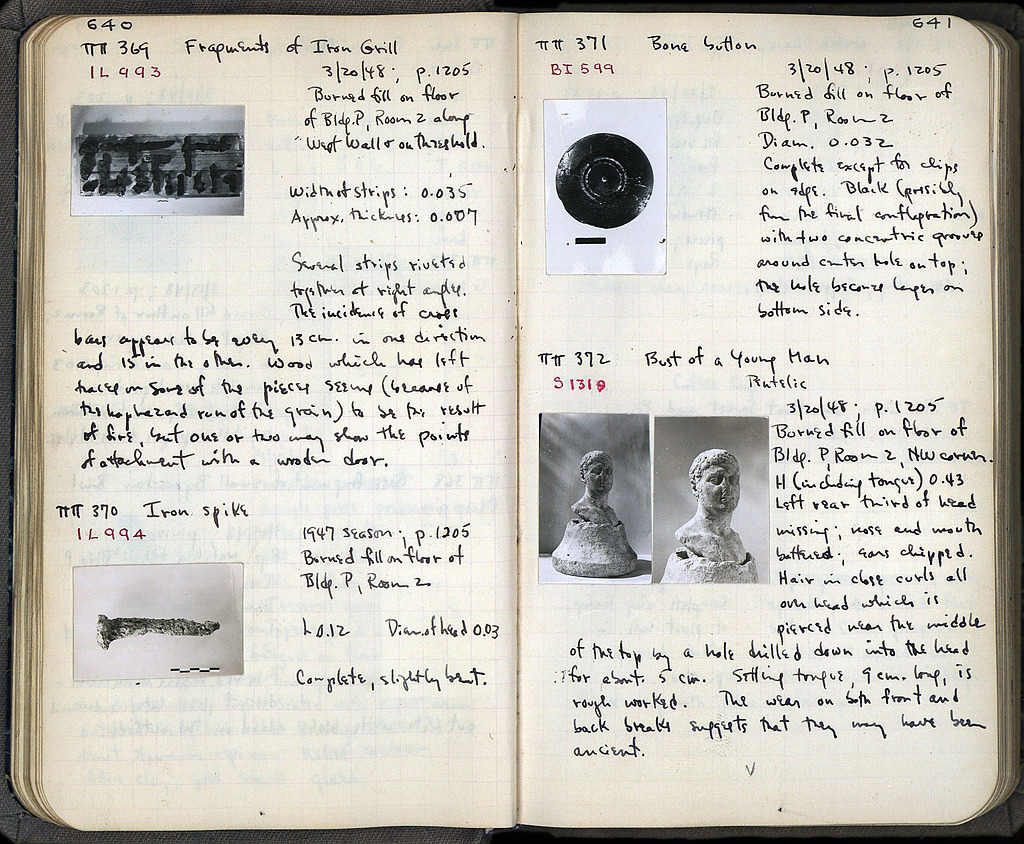 640
ΠΠ 369 Fragments of Iron Grill
IL 993
3/20/48; p. 1205
Burned fill on floor
of Bldg. P, Room 2 along
West Wall & on threshold.
Width of strips: 0.035
Approx. thickness: 0.007
Several strips riveted
together at right angles.
The incidence of cross
bars appears to be every 13 cm. in one direction
and 15 in the other. Wood which has left
traces on some of the pieces seems (because of
the haphazard run of the grain) to be the result
of fire, but one or two may show the points
of attachment with a wooden door.
ΠΠ 370 Iron spike
IL 994
1947 season; p. 1205
Burned fill on floor of
Bldg. P, Room 2
L 0.12 Diam. of head 0.03
Complete, slightly bent.
641
ΠΠ 371 Bone button
BI 599
3/20/48; p. 1205
Burned fill on floor of
Bldg. P, Room 2
Diam. 0.032
Complete except for chips
on edge. Black (possibly
from the final conflagration)
with two concentric grooves
around center hole on top;
the hole becomes larger on
bottom side.
ΠΠ 372 Bust of a Young Man
S 1319
Pentelic
3/20/48; p. 1205
Burned fill on floor of
Bldg. P, Room 2, NW corner.
H (including tongue) 0.43
Left rear third of head
missing; nose and mouth
battered; ears chipped.
Hair in close curls all
over head which is
pierced near the middle
of the top by a hole drilled down into the head
for about 5 cm. Setting tongue, 9 cm. long, is
rough worked. The wear on both front and
back breaks suggests that they may have been
ancient.